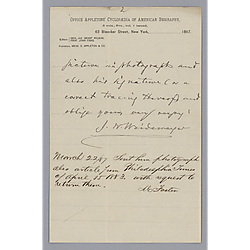 2
OFFICE APPLETONS' CYCLOPÆDIA OF AMERICAN BIOGRAPHY,
63 Bleecker Street, New York,
1887.
in photographs and
also his signature (or a
correct tracing thereof) and
oblige yours very truly,
J. W. Weidemeyer
March 22, 87 Sent him photograph
also article from Philadelphia Times
of April 15 1883. with request to
return them.